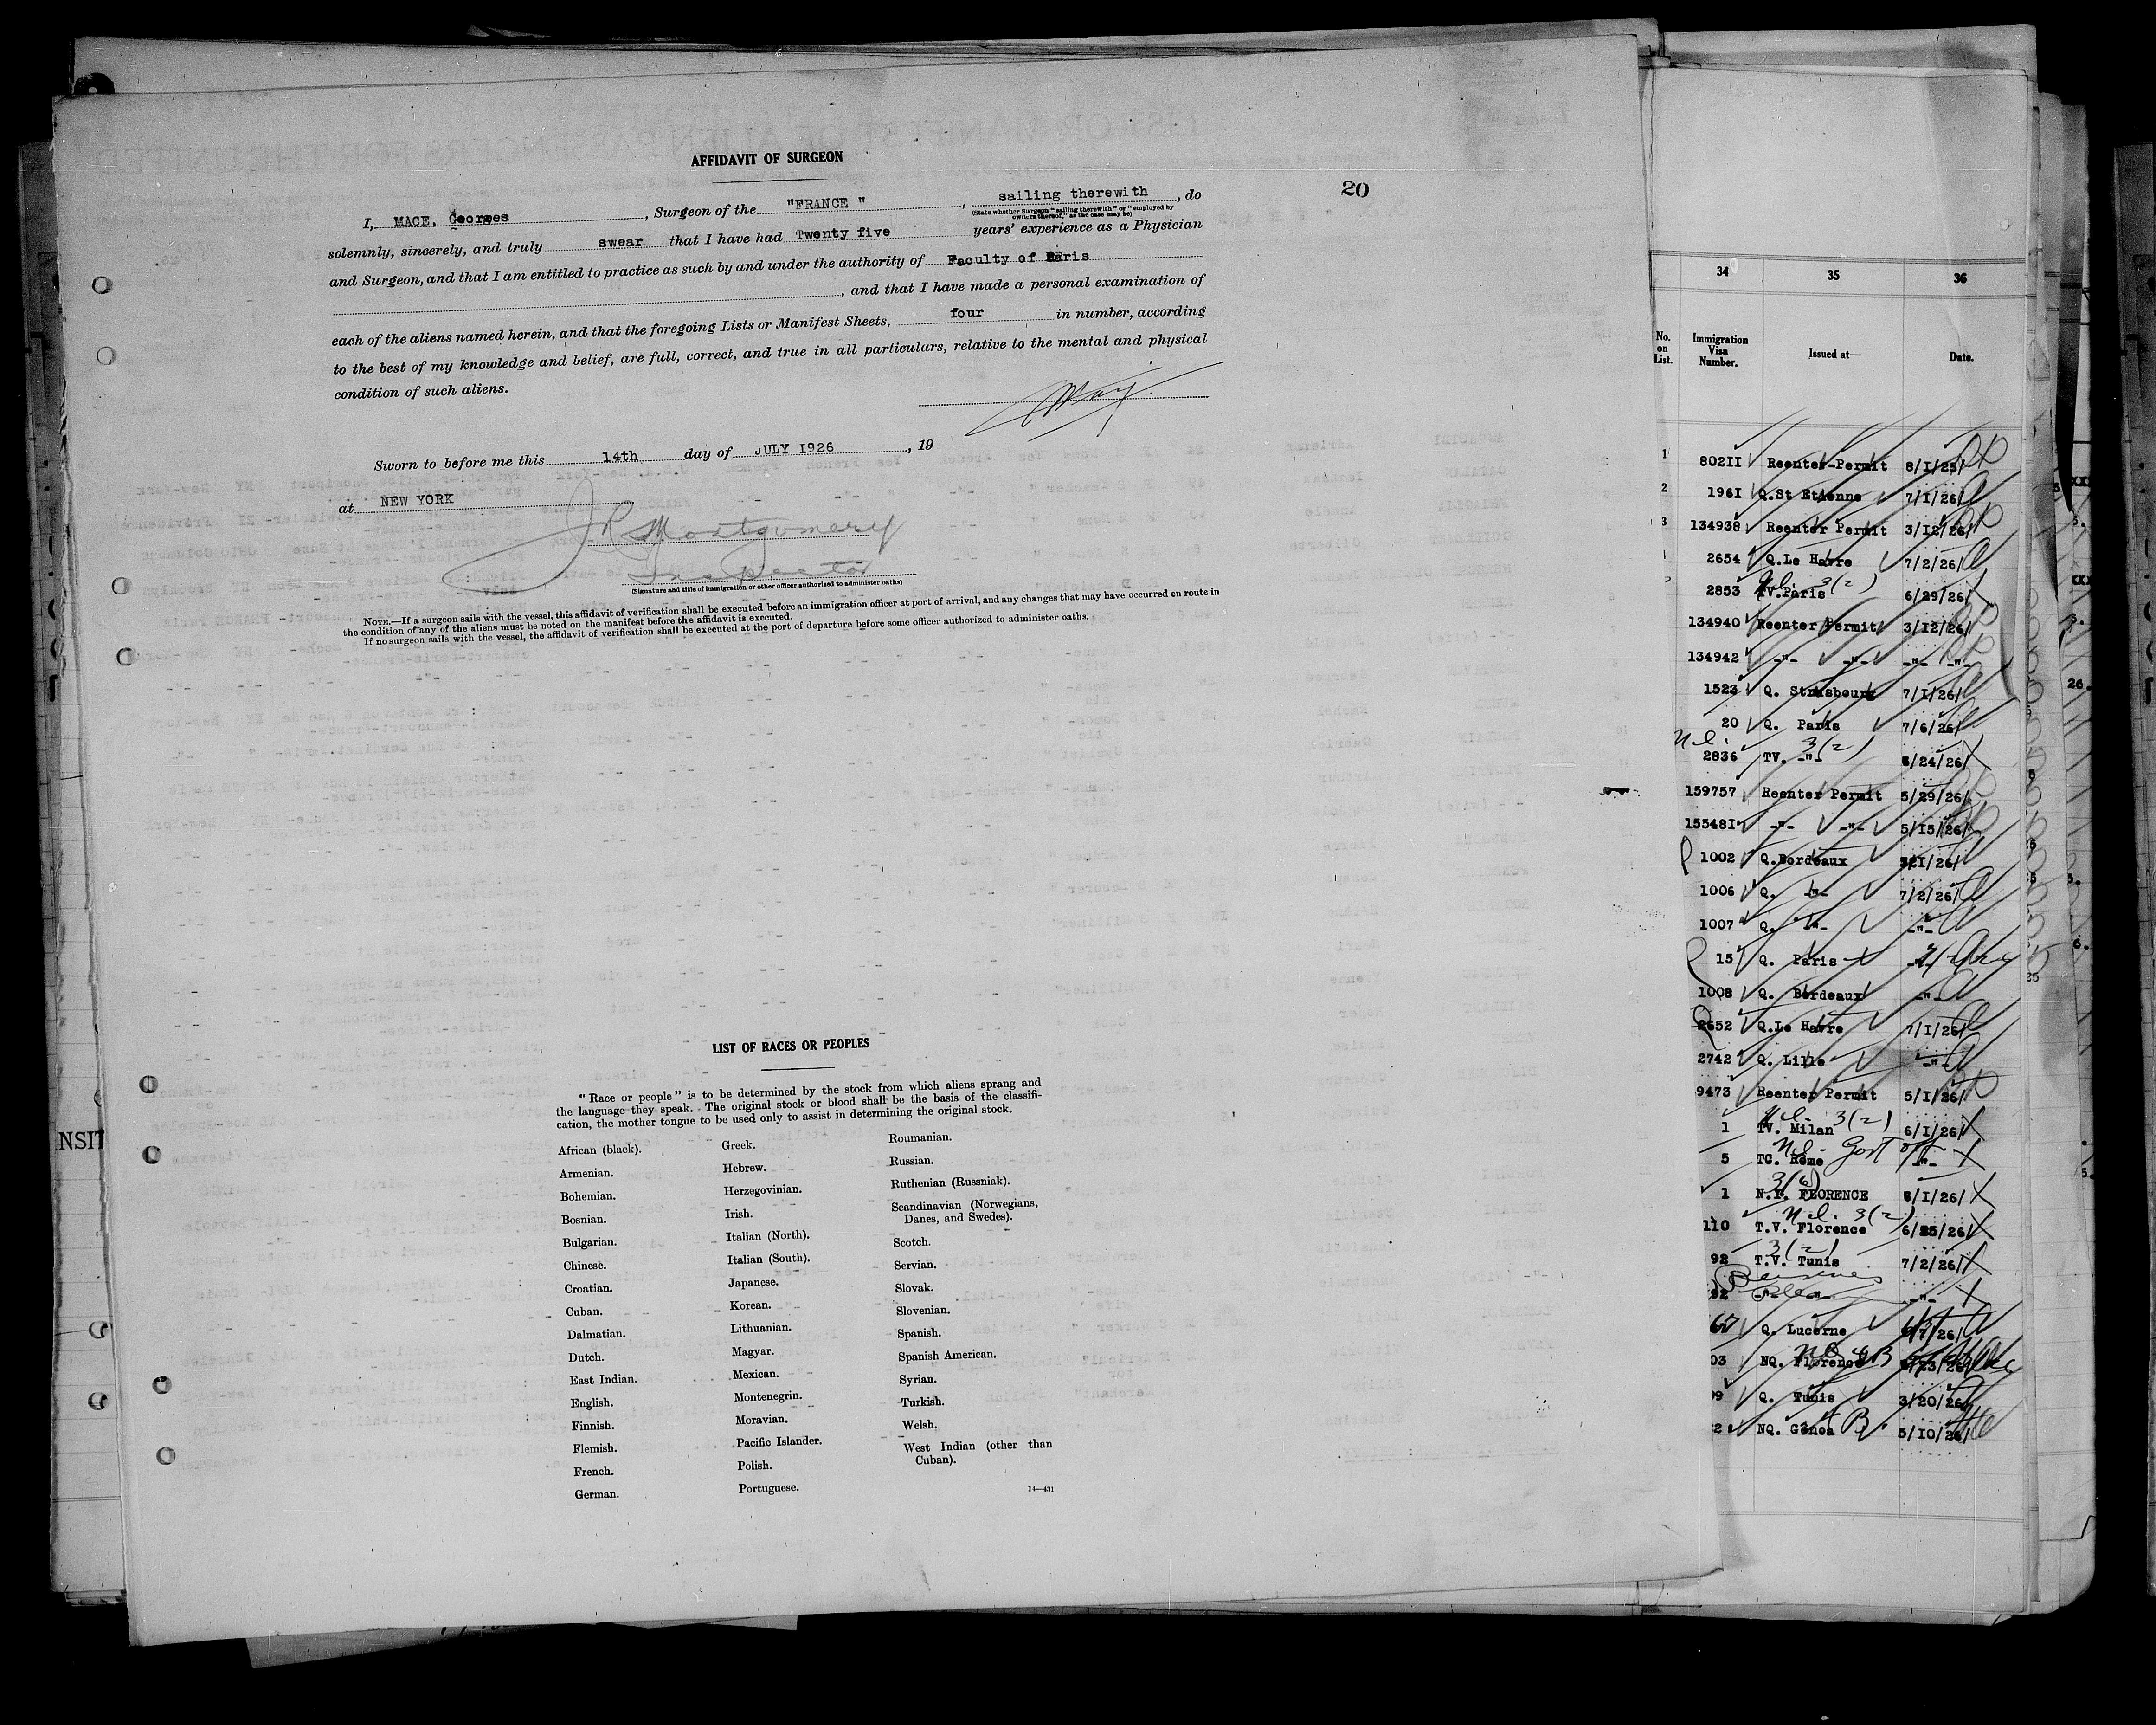 AFFIDAVIT OF SURGEON
20
I, MACE, Georges, Surgeon of the "FRANCE ", sailing therewith, do
(State whether Surgeon "sailing therewith" or "employed by
owners thereof," as the case may be)
solemnly, sincerely, and truly swear that I have had Twenty five years' experience as a Physician
and Surgeon, and that I am entitled to practice as such by and under the authority of Faculty of Paris
, and that I have made a personal examination of
each of the aliens named herein, and that the foregoing Lists or Manifest Sheets, four in number, according
to the best of my knowledge and belief, are full, correct, and true in all particulars, relative to the mental and physical
condition of such aliens.
Sworn to before me this 14th day of JULY 1926, 19
at NEW YORK
J R Montgomery
Inspector
(Signature and title of immigration or other officer authorized to administer oaths)
NOTE.—If a surgeon sails with the vessel, this affidavit of verification shall be executed before an immigration officer at port of arrival, and any changes that may have occurred en route in
the condition of any of the aliens must be noted on the manifest before the affidavit is executed.
If no surgeon sails with the vessel, the affidavit of verification shall be executed at the port of departure before some officer authorized to administer oaths.
LIST OF RACES OR PEOPLES
"Race or people" is to be determined by the stock from which aliens sprang and
the language they speak. The original stock or blood shall be the basis of the classifi-
cation, the mother tongue to be used only to assist in determining the original stock.
African (black).
Armenian.
Bohemian.
Bosnian.
Bulgarian.
Chinese.
Croatian.
Cuban.
Dalmatian.
Dutch.
East Indian.
English.
Finnish.
Flemish.
French.
German.
Greek.
Hebrew.
Herzegovinian.
Irish.
Italian (North).
Italian (South).
Japanese.
Korean.
Lithuanian.
Magyar.
Mexican.
Montenegrin.
Moravian.
Pacific Islander.
Polish.
Portuguese.
Roumanian.
Russian.
Ruthenian (Russniak).
Scandinavian (Norwegians,
Danes, and Swedes).
Scotch.
Servian.
Slovak.
Slovenian.
Spanish.
Spanish American.
Syrian.
Turkish.
Welsh.
West Indian (other than
Cuban).
14—431
NSIT
34 35 36
No.
on
List.
Immigration
Visa
Number.
Issued at—
Date.
1 802II Reenter-Permit 8/I/25/
2 196I Q.St Etienne 7/I/26/
3 134938 Reenter Permit 3/I2/26/
2654 Q.Le Havre 7/2/26/
3(2)
2853 TV.Paris 6/29/26/
134940 Reenter Permit 3/I2/26/
134942 -"- -"- -"- -"-
1523 Q. Strasbourg 7/I/26/
20 Q. Paris 7/6/26/
3(2)
2836 TV. -"- 6/24/26/
159757 Reenter Permit 5/29/26/
15548I -"- -"- 5/I5/26/
1002 Q.Bordeaux /26/
1006 Q. -"- 7/2/26/
1007 Q. -"- -"-
15 Q. Paris -"-
1008 Q. Bordeaux -"-
2652 Q.Le Havre 7/I/26/
2742 Q. Lille -"-
9473 Reenter Permit 5/I/26/
3(2)
1 TV. Milan 6/I/26/
Govt off
5 TC. Rome -"-
3(6)
1 N.P. FLORENCE /I/26/
3(2)
110 T.V. Florence 6/25/26/
3(2)
92 T.V. Tunis 7/2/26/
92 -"- -"- -"-
Q. Lucerne /7/26/
03 NQ. Florence /23/26/
99 Q. Tunis 3/20/26/
2 NQ. Genoa 5/I0/26/